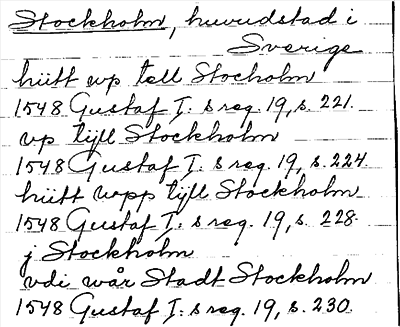 Stockholm, huvudstad i
Sverige
hiitt vp tell Stocholm
1548 Gustaf I:s reg. 19, s. 221.
vp tijll Stockholm
1548 Gustaf I:s reg. 19, s. 224.
hiitt wpp tijll Stockholm
1548 Gustaf I:s reg. 19, s. 228.
j Stockholm
vdi wår Stadt Stockholm
1548 Gustaf I:s reg. 19, s. 230.